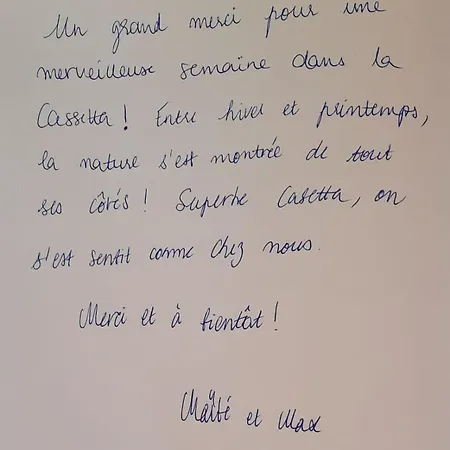 Un grand merci pour une
merveilleuse semaine dans la
Cassetta! Entre hiver et printemps,
la nature s'est montrée de tout
ses côtés! Superbe Casetta, on
s'est sentit comme chez nous.
Merci et à bientôt!
Maïté et Max